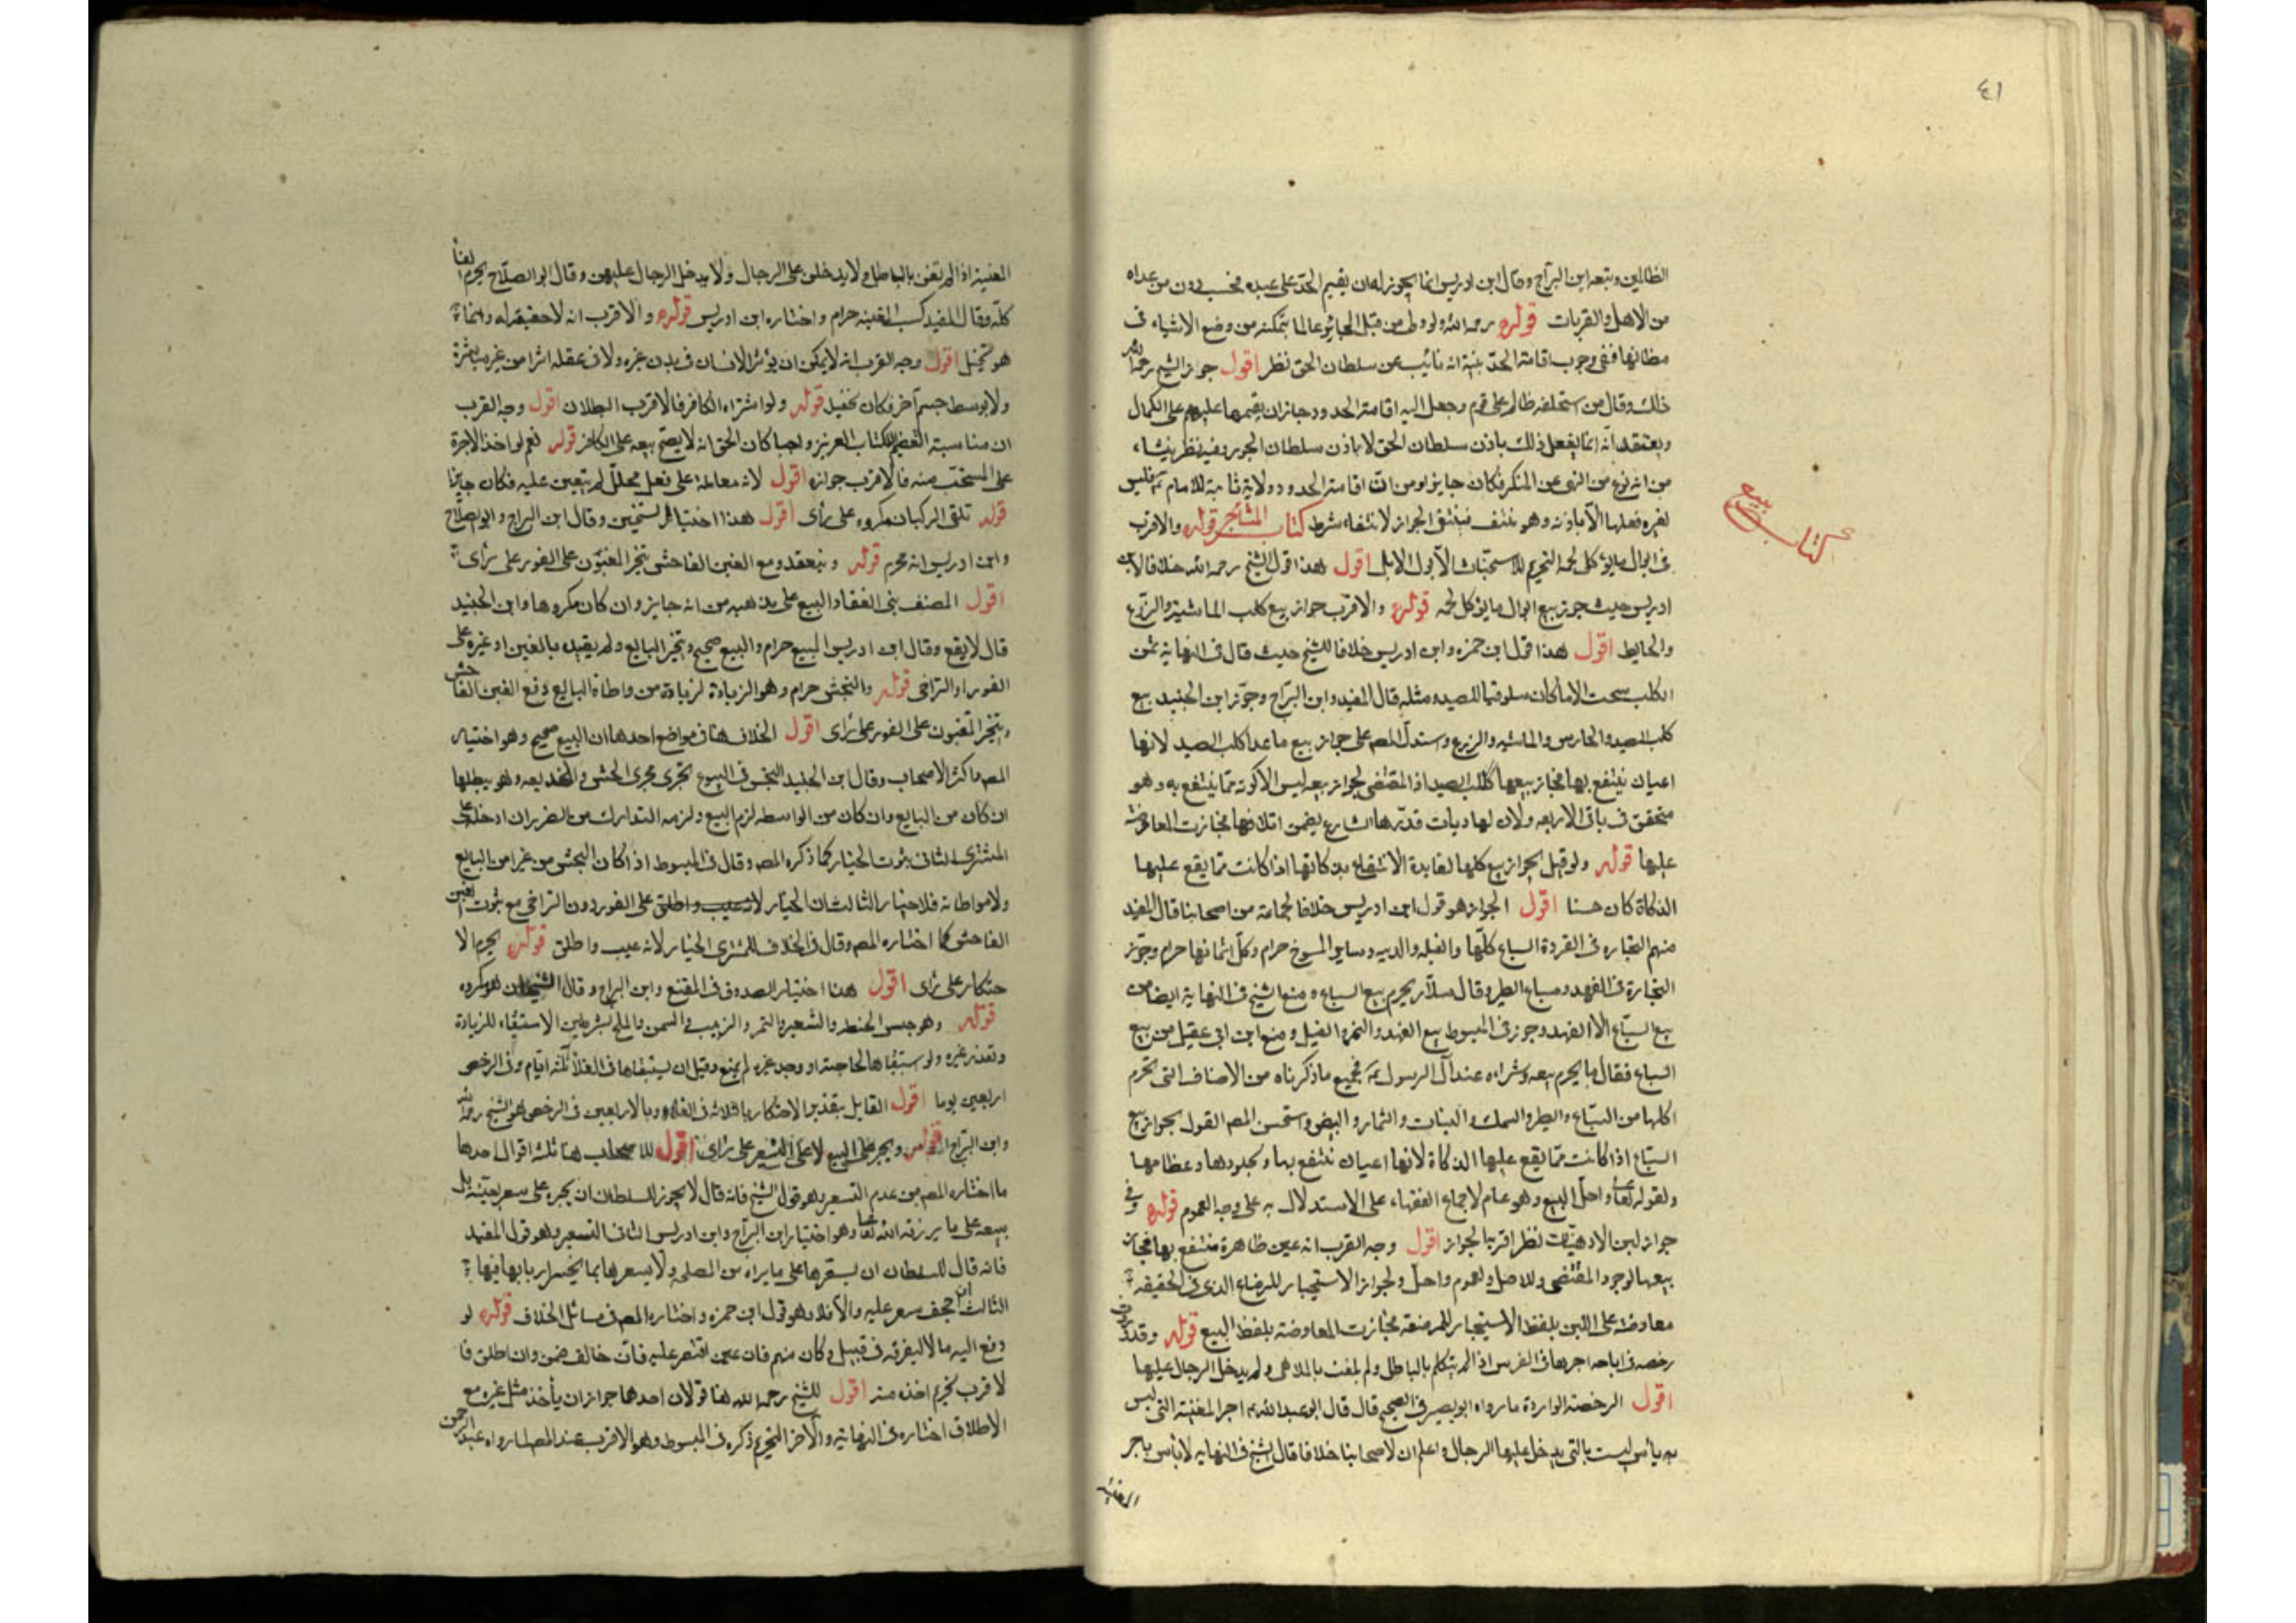 ٤١
الظالمين وتبعه ابن البراج وقال ابن ادريس انما يجوز له ان يقيم الحد على عبده فحسب دون من عداه
من الاهل والقرابات قوله رحمه الله ولو ولى من قبل الجائر عالما بتمكنه من وضع الاشياء فى
مظانها ففى وجوب اقامة الحد بنية انه نائب عن سلطان الحق نظر اقول جوز الشيخ رحمه الله
ذلك وقال من استخلفه ظالم على قوم وجعل اليه اقامة الحدود جاز ان يقيمها عليهم على الكمال
ويعتقد انه انما يفعل ذلك باذن سلطان الحق لا باذن سلطان الجور وفيه نظر ينشاء
من انه نوع من النهى عن المنكر فكان جايزا ومن ان اقامة الحدود ولاية ثابتة للامام فليس
لغيره فعلها الا باذنه وهو منتف فينتفى الجواز لانتفاء شرطه كتاب المتاجر قوله والاقرب
كتاب بيع
فى ابوال ما يؤكل لحمه التحريم للاستخباث الا بول الابل اقول هذا قول الشيخ رحمه الله خلافا لابن
ادريس حيث جوز بيع ابوال ما يؤكل لحمه قوله والاقرب جواز بيع كلب الماشية والزرع
والحايط اقول هذا قول ابن حمزه وابن ادريس خلافا للشيخ حيث قال فى النهاية ثمن
الكلب سحت الا ما كان سلوقيا للصيد ومثله قال المفيد وابن البراج وجوز ابن الجنيد بيع
كلب الصيد والحارس والماشيه والزرع واستدل المصـ على جواز بيع ما عدا كلب الصيد لانها
اعيان ينتفع بها فجاز بيعها ككلب الصيد اذ المقتضى لجواز بيعه ليس الا كونه مما ينتفع به وهو
متحقق فى باقى الاربعه ولان لها ديات قدرها الشارع يضمن اتلافها فجازت المعاوضة
عليها قوله ولو قيل بجواز بيع كلها لفايدة الانتفاع بذكاتها اذا كانت مما يقع عليها
الذكاة كان حسنا اقول الجواز هو قول ابن ادريس خلافا لجماعة من اصحابنا قال المفيد
منهم التجاره فى القردة السباع كلها والفيله والدببه وساير المسوخ حرام وكل اثمانها حرام وجوز
التجارة فى الفهد وسباع الطير وقال سلار يحرم بيع السباع ومنع الشيخ فى النهاية ايضا من
بيع السباع الا الفهد وجوز فى المبسوط بيع الفهد والنمر والفيل ومنع ابن ابى عقيل من بيع
السباع فقال ما يحرم بيعه وشراءه عند آل الرسول جميع ما ذكرناه من الاصناف التى تحرم
اكلها من السباع والطير والسمك والنبات والثمار والبيض واستحسن المصـ القول بجواز بيع
السباع اذا كانت مما يقع عليها الذكاة لانها اعيان ينتفع بها وبجلودها وعظامها
ولقوله تعالى واحل البيع وهو عام لاجماع الفقهاء على الاستدلال به على وجه العموم قوله وفى
جواز لبن الادميات نظر اقربه الجواز اقول وجه القرب انه عين طاهرة منتفع بها فجاز
بيعها لوجود المقتضى وللاصل ولعموم واحل ولجواز الاستيجار للرضاع الذى فى الحقيقه
معاوضة على اللبن بلفظ الاستيجار للمرضعة فجازت المعاوضة بلفظ البيع قوله وقد روى
رخصه فى اباحه اجرها فى العرس اذا لم تتكلم بالباطل ولم تلعب بالملاهى ولم يدخل الرجال عليها
اقول الرخصة الواردة ما رواه ابو بصير فى الصحيح قال قال ابو عبد الله اجر المغنية التى ليس
به بأس ليست بالتى يدخل عليها الرجال واعلم ان لاصحابنا خلافا قال الشيخ فى النهايه لا بأس باجر
المغنية
المغنية اذا لم تغن بالباطل ولا يدخلن على الرجال ولا يدخل الرجال عليهن وقال ابو الصلاح يحرم الغنا
كله وقال المفيد كسب المغنيه حرام واختاره ابن ادريس قوله والاقرب انه لا حقيقة له وانما
هو تخيل اقول وجه القرب انه لا يمكن ان يؤثر الانسان فى بدن غيره ولا فى عقله اثرا من غير مباشرة
ولا بوسط جسم آخر فكان تخييل قوله ولو اشتراه الكافر فالاقرب البطلان اقول وجه القرب
ان مناسبة التعظيم للكتاب العزيز واجبا كان الحق انه لا يصح بيعه على الكافر قوله نعم لو اخذ الاجرة
على المستحب منه فالاقرب جوازه اقول لانه معاملة على فعل محلل لم يتعين عليه فكان جايزا
قوله تلقى الركبان مكروه على رأى اقول هذا اختيار الشيخين وقال ابن البراج وابو الصلاح
وابن ادريس انه محرم قوله وينعقد ومع الغبن الفاحش يتخير المغبون على الفور على رأى
اقول المصنف بنى انعقاد البيع على مذهبه من انه جايز وان كان مكروها وابن الجنيد
قال لا يقع وقال ابن ادريس البيع حرام والبيع صحيح ويتخير البايع ولم يقيده بالغبن او غيره على
الفور او التراخى قوله والنجش حرام وهو الزيادة لزيادة من واطأه البايع ومع الغبن الفاحش
يتخير المغبون على الفور على رأى اقول الخلاف هنا فى مواضع احدها ان البيع صحيح وهو اختيار
المصـ واكثر الاصحاب وقال ابن الجنيد النجش فى البيوع يجرى مجرى الغش والخديعه وهو يبطلها
ان كان من البايع وان كان من الواسطه لزم البيع ولزمه التدارك من الضرر ان ادخله على
المشترى الثانى ثبوت الخيار كما ذكره المصـ وقال فى المبسوط اذا كان النجش من غير امر البايع
ولا مواطاته فلا خيار الثالث ان الخيار على الفور دون التراخى مع ثبوت الغبن
الفاحش كما اختاره المصـ وقال فى الخلاف للمشترى الخيار لانه عيب واطلق قوله يحرم الا
حتكار على رأى اقول هذا اختيار الصدوق فى المقنع وابن البراج وقال الشيخان هو مكروه
قوله وهو حبس الحنطه والشعير والتمر والزبيب والسمن والملح بشرطين الاستبقاء للزيادة
وتعذر غيره ولو استبقاها لحاجته او وجد غيره لم يمنع وقيل ان يستبقاها فى الغلا ثلثة ايام وفى الرخص
اربعين يوما اقول القايل بتقدير الاحتكار بالثلاثة فى الغلاء وبالاربعين فى الرخص هو الشيخ رحمه الله
وابن البراج قوله ويجبر على البيع لا على التسعير على رأى اقول للاصحاب هنا ثلثه اقوال احدها
ما اختاره المصـ من عدم التسعير وهو قول الشيخ فانه قال لا يجوز للسلطان ان يجبره على سعر بعينه بل
يبيعه على ما يرزقه الله تعالى وهو اختيار ابن البراج وابن ادريس الثانى التسعير وهو قول المفيد
فانه قال للسلطان ان يسعرها على ما يراه من المصلحه ولا يسعرها بما يخسر اربابها فيها
الثالث ان اجحف سعر عليه والا فلا وهو قول ابن حمزه واختاره المصـ فى مسائل الخلاف قوله لو
دفع اليه مالا ليفرقه فى قبيل وكان منهم فان عين اقتصر عليه فان خالف ضمن وان اطلق فا
لاقرب تحريم اخذه منه اقول للشيخ رحمه الله هنا قولان احدهما جواز ان يأخذ مثل غيره مع
الاطلاق اختاره فى النهاية والآخر التحريم ذكره فى المبسوط وهو الاقرب عند المصـ لما رواه عبد الرحمن